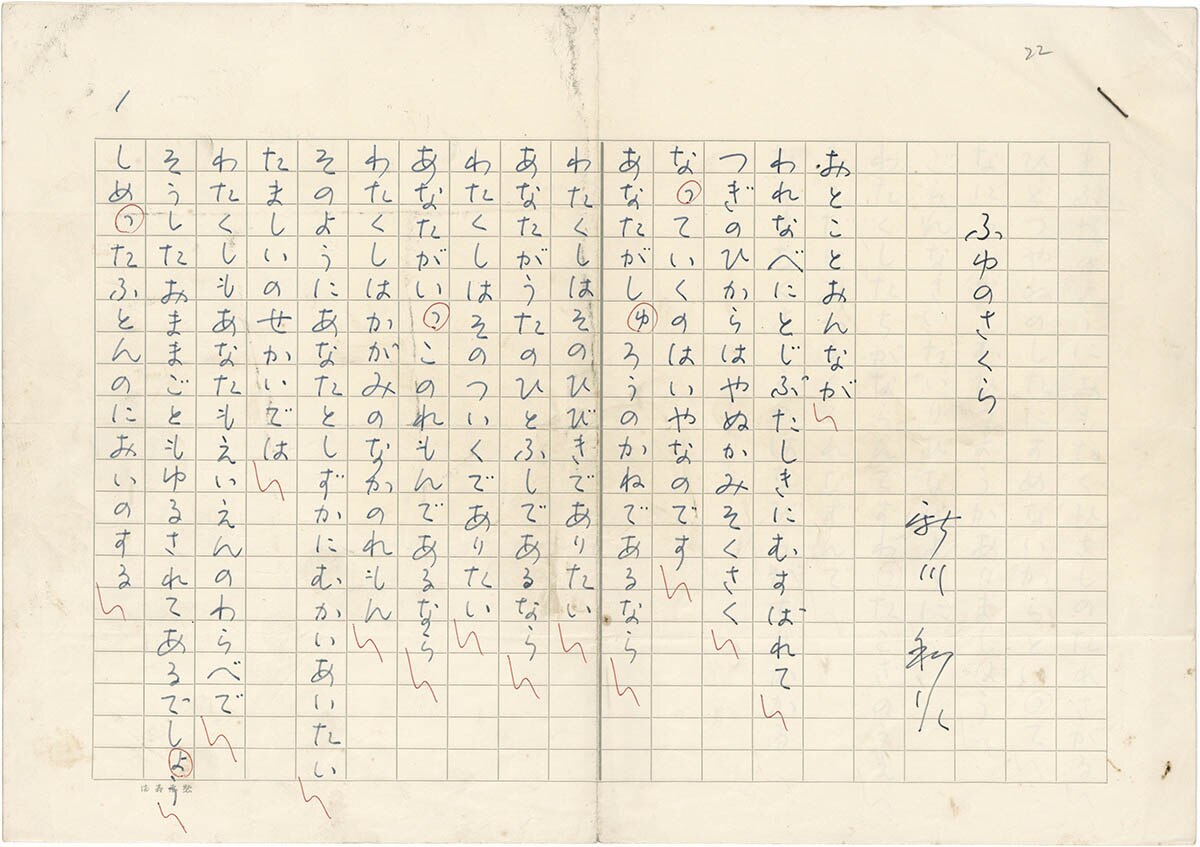 22
ふゆのさくら
新川和江
おとことおんなが
われなべにとじぶたしきにむすばれて
つぎのひからはやぬかみそくさく
なっていくのはいやなのです
あなたがしゅろうのかねであるなら
わたくしはそのひびきでありたい
あなたがうたのひとふしであるなら
わたくしはそのついくでありたい
あなたがいっこのれもんであるなら
わたくしはかがみのなかのれもん
そのようにあなたとしずかにむかいあいたい
たましいのせかいでは
わたくしもあなたもえいえんのわらべで
そうしたおままごともゆるされてあるでしょう
しめったふとんのにおいのする
1